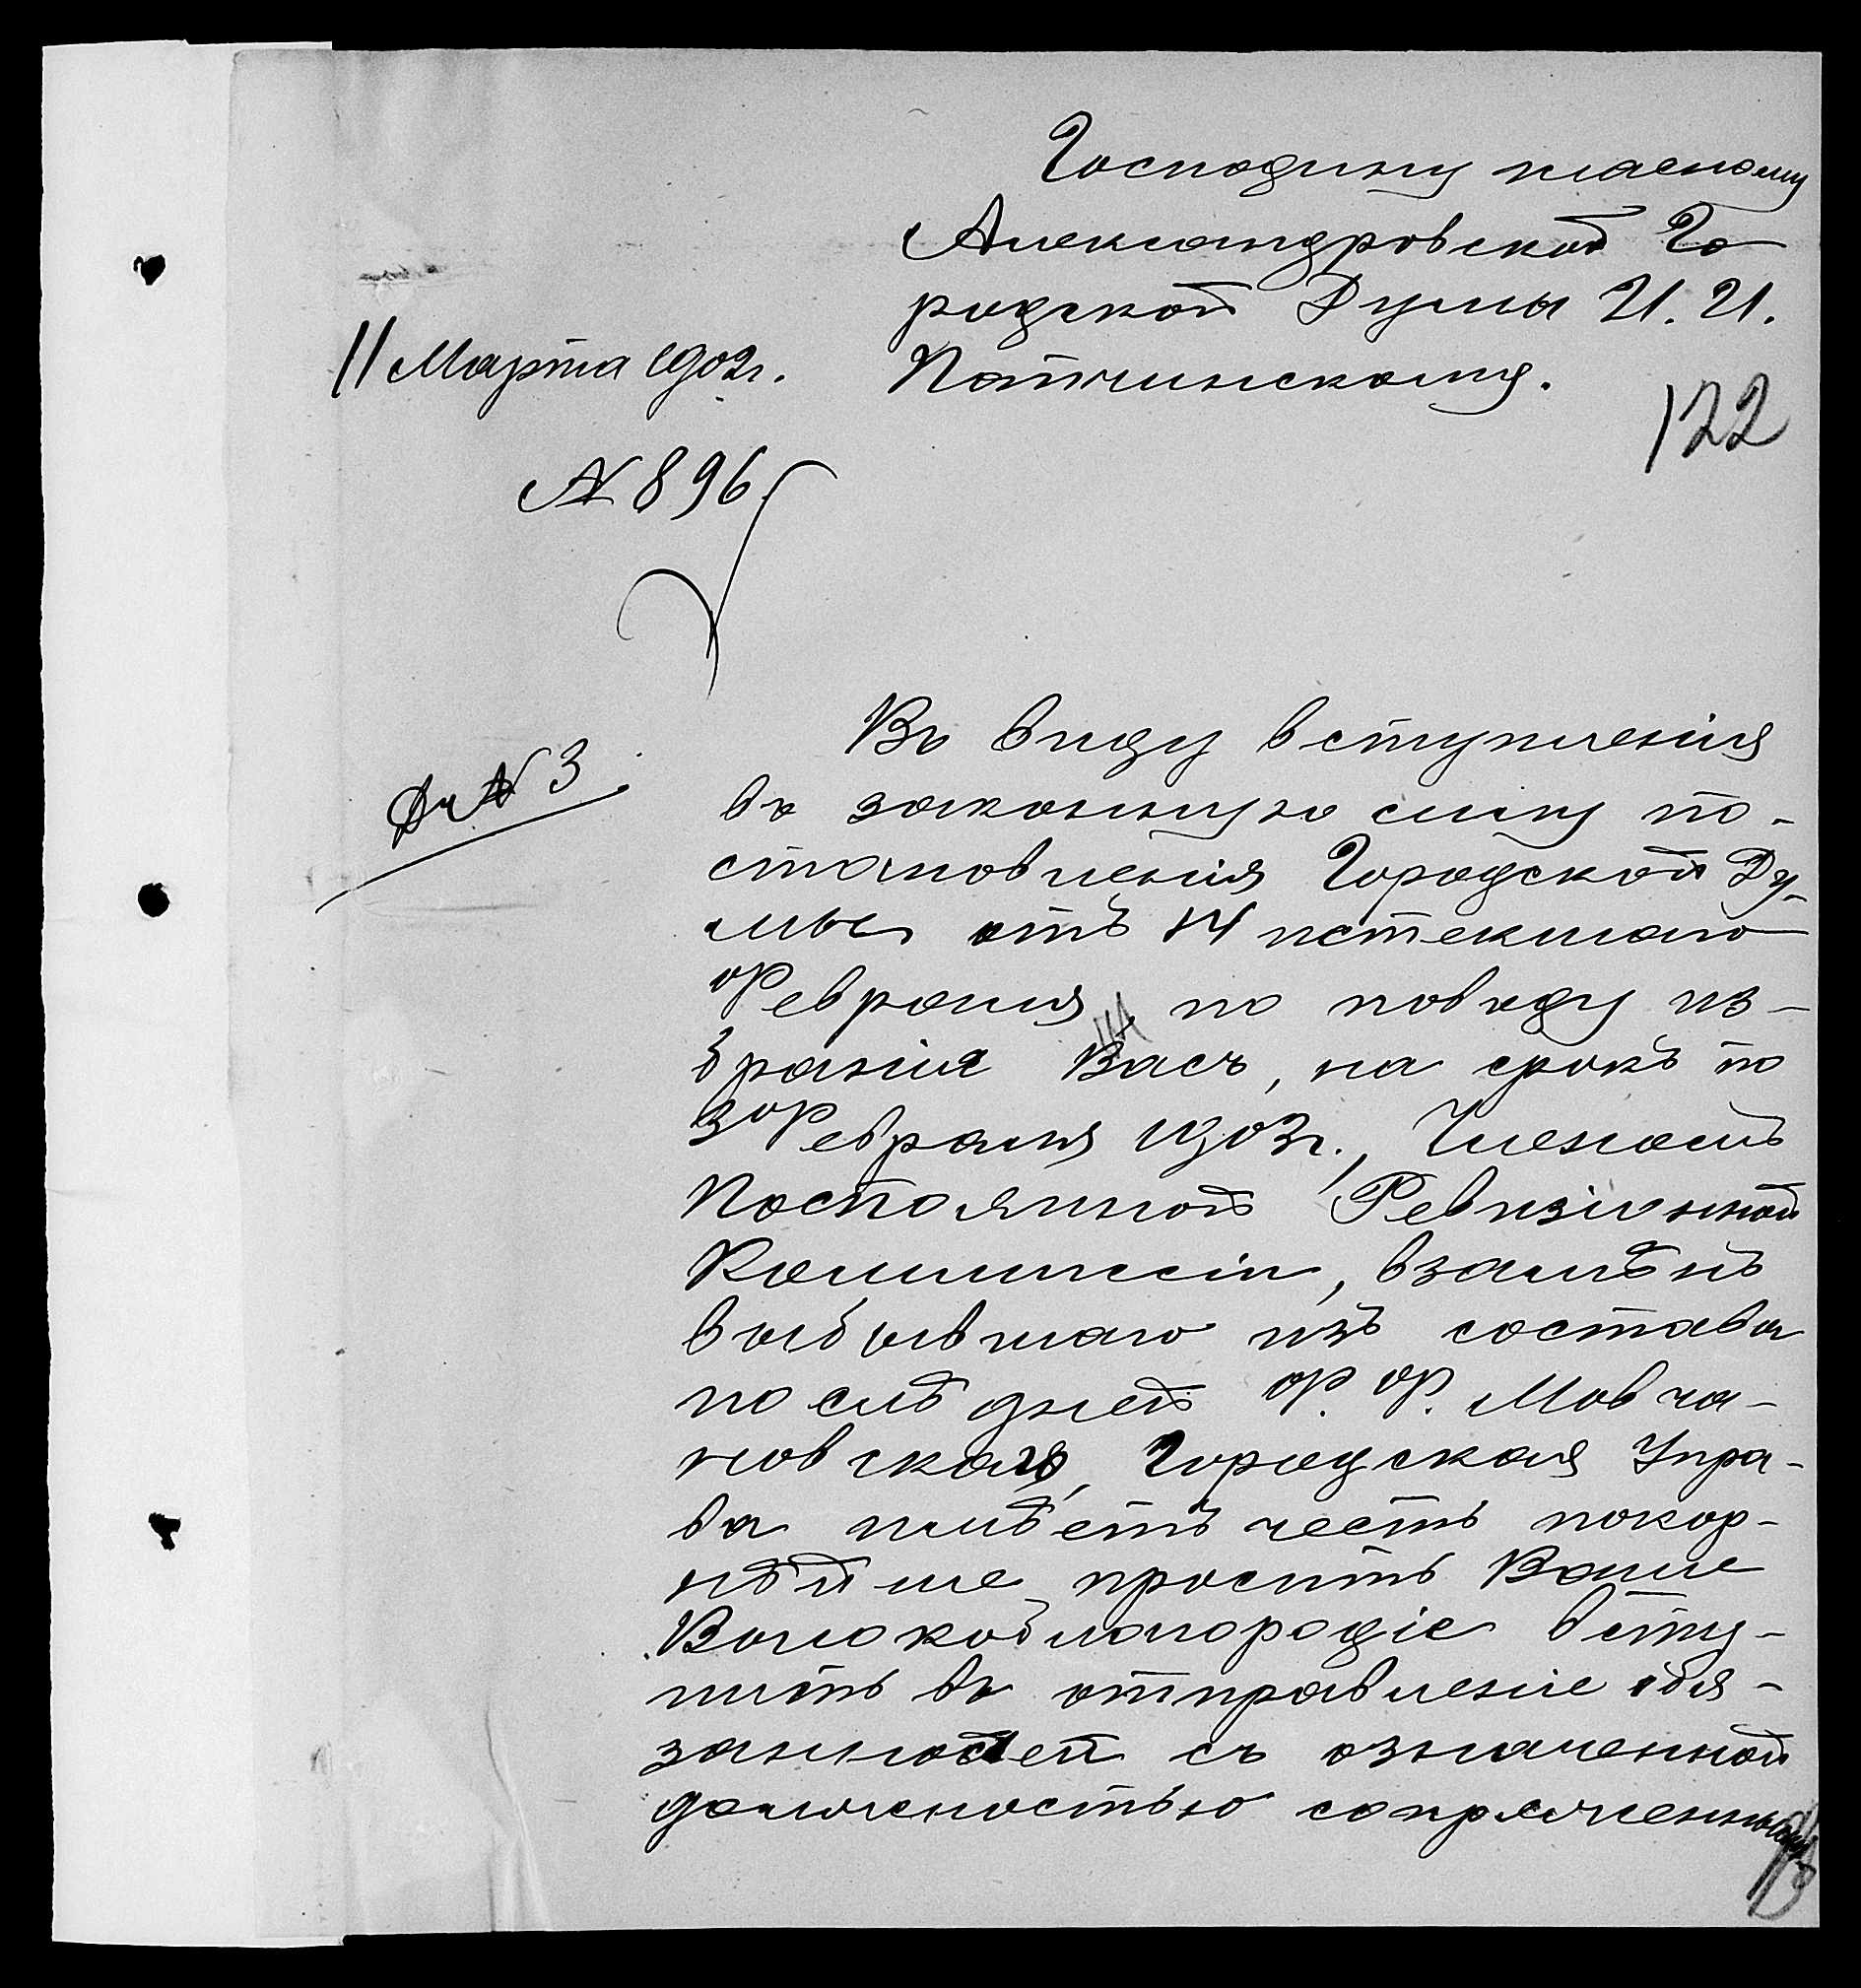 Господину гласному
Александровской Го
родской Думы И. И.
Потчинскому.
11 Марта 1902 г.
122
№ 896
Въ виду вступленія
Дч № 3
въ законную силу по-
становленія Городской Ду-
мы отъ 14 истекшаго
Февраля, по поводу из-
бранія Васъ, на срокъ по
3 Февраля 1903 г., Членомъ
Постоянной Ревизіонной
Коммиссіи, взамѣнъ
выбывшаго изъ состава
послѣдней Ф. Ф. Мовча-
новскаго, Городская Упра-
ва имѣетъ честь покор-
нѣйше просить Ваше
Высокоблагородіе всту-
пить въ отправленіе обя-
занностей съ означенной
должностью сопряженныхъ